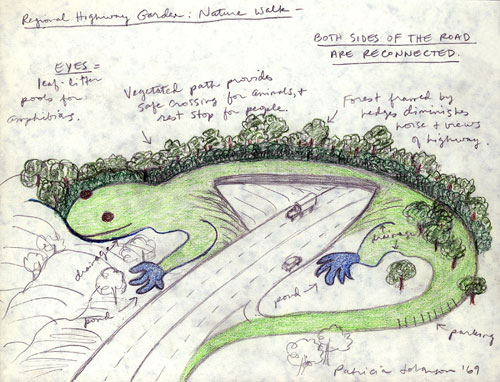 Regional Highway Garden: Nature Walk –
BOTH SIDES OF THE ROAD
ARE RECONNECTED.
EYES =
leaf-litter
pools for
amphibians.
Vegetated path provides
safe crossing for animals, +
rest stop for people.
Forest framed by
hedges diminishes
noise + views
of highway.
drainage
pond
pond
drainage
parking
Patricia Johanson '69